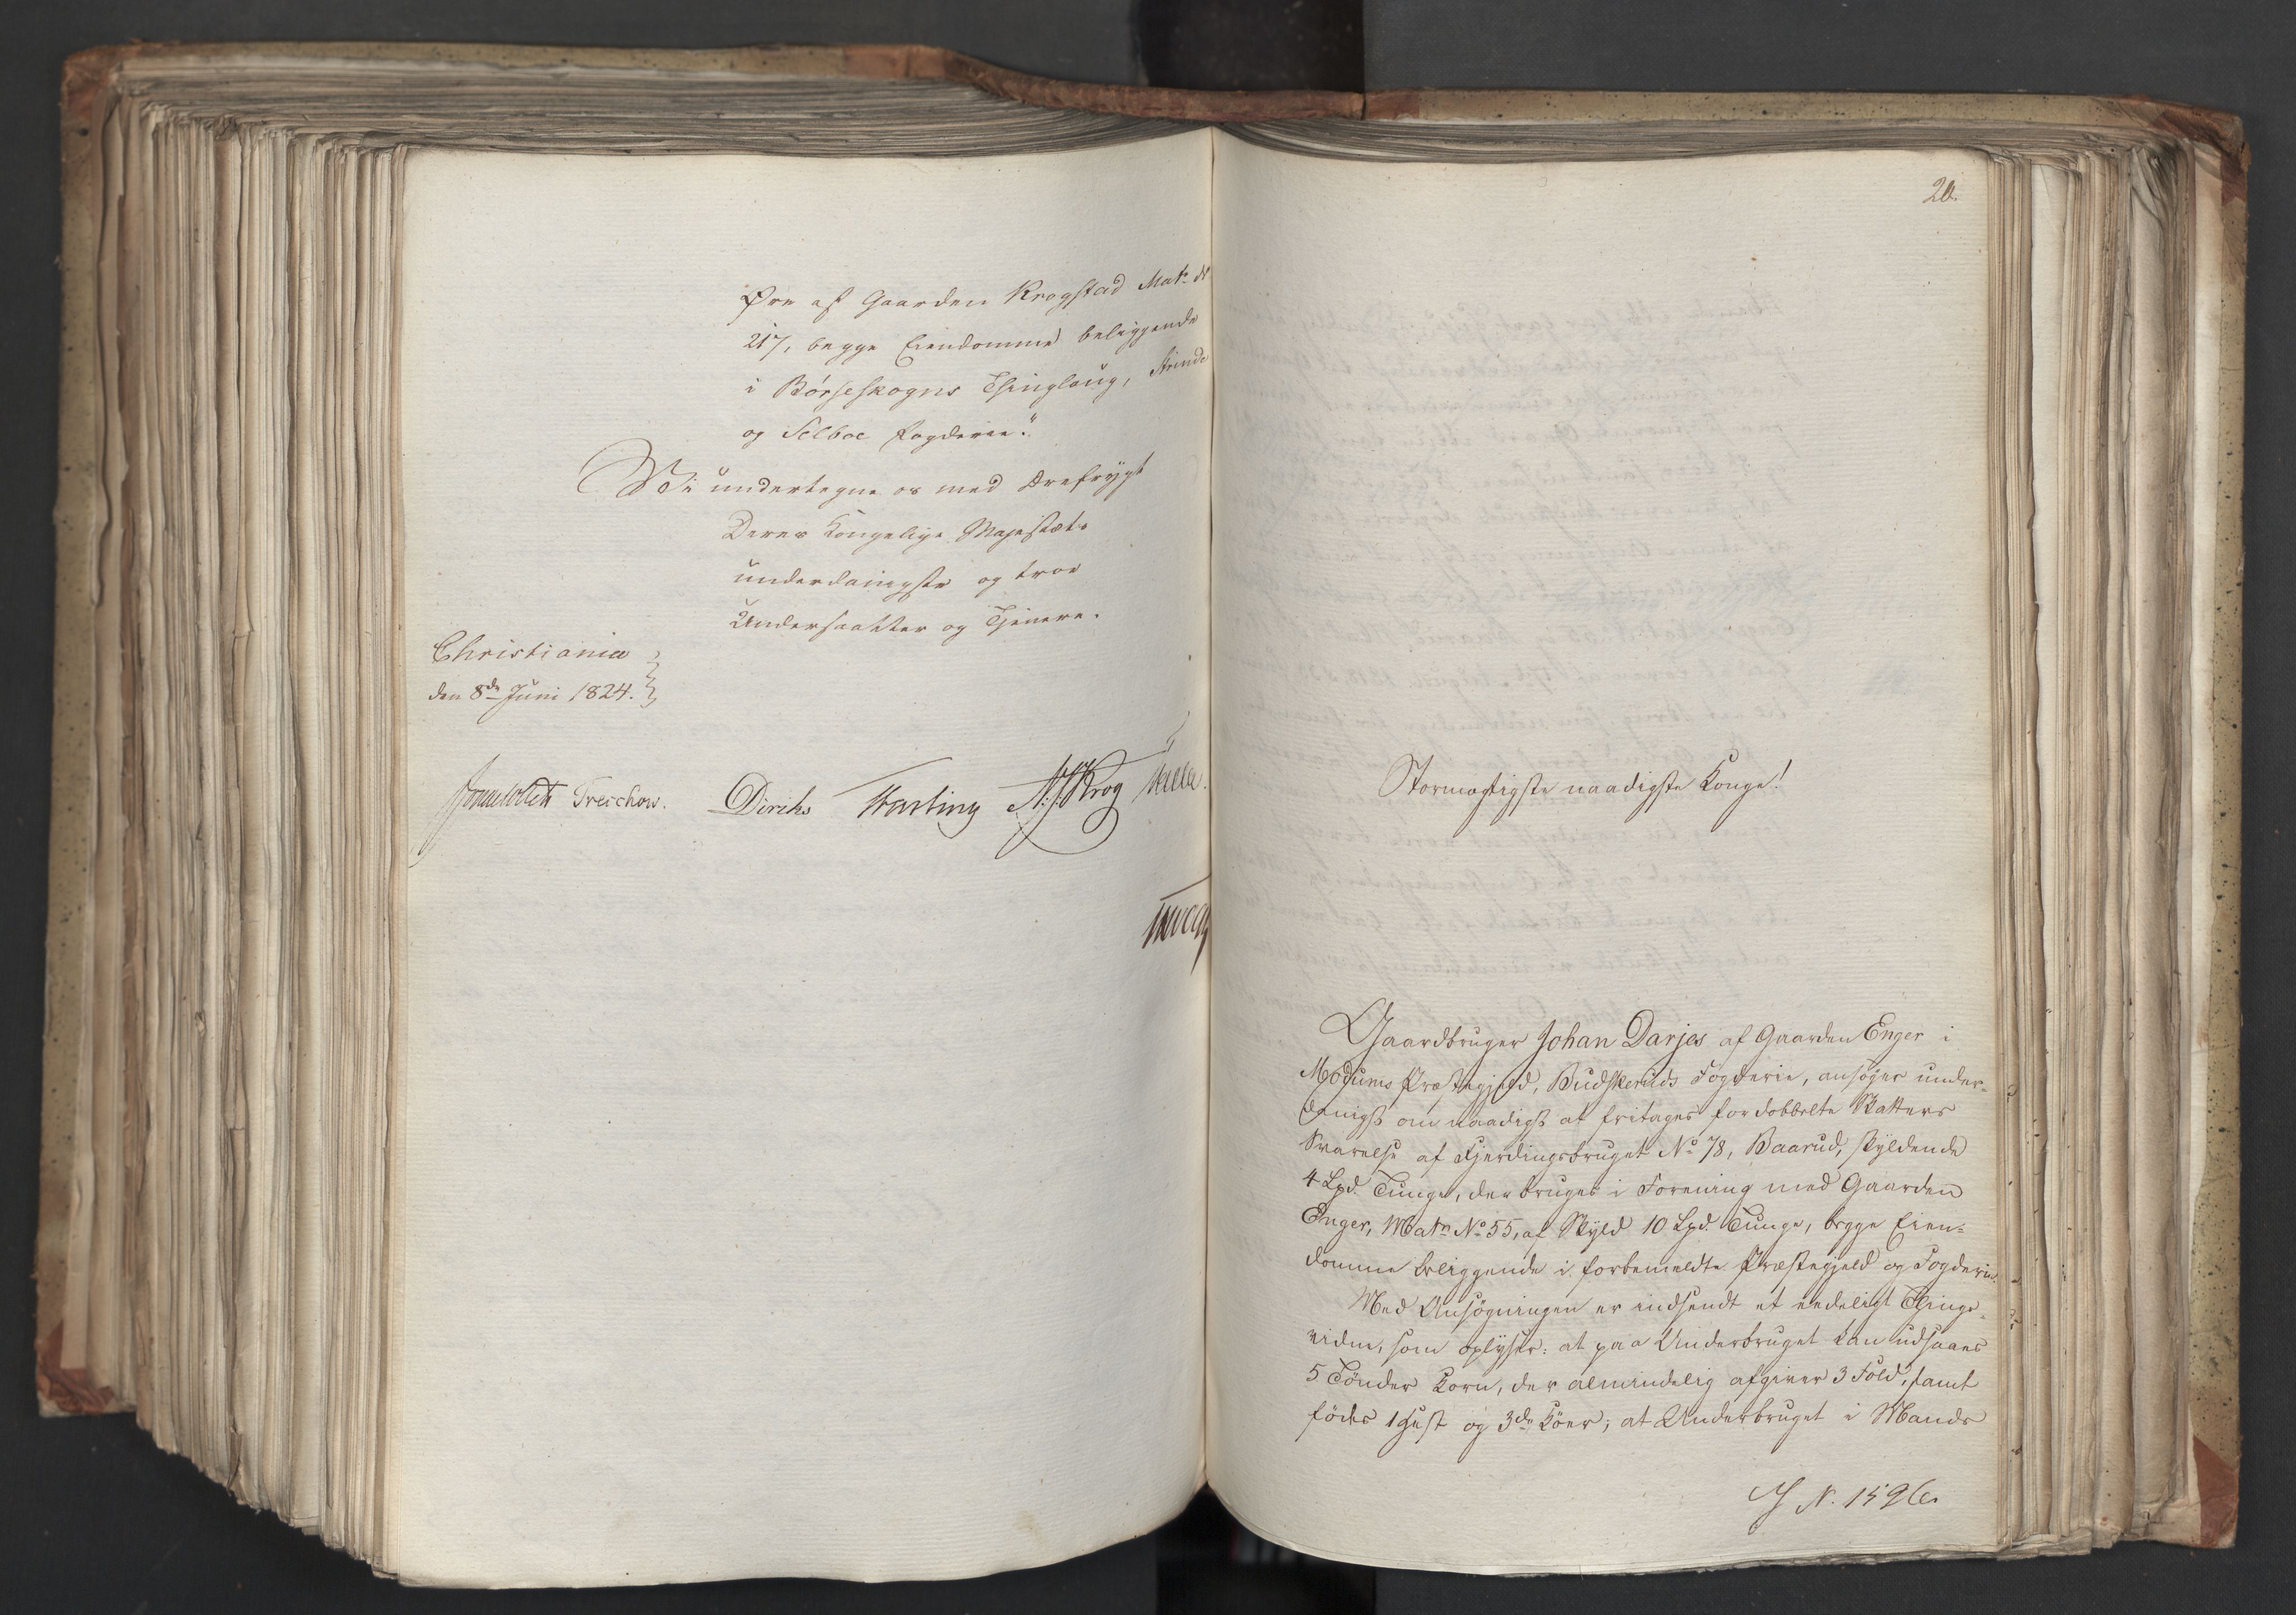 Øre af Gaarden Krogstad Mat: N
217, begge Eiendomme beliggende
i Börseskogns Thinglaug, Strinde
og Selboe Fogderie."
Vi undertegne os med Ærefrygt
Deres Kongelige Majestæts
underdanigste og troe
Undersaatter og Tjenere.
Christiania
den 8de Juni 1824.
Sommerhielm Treschow. Diriks Fasting N: J: Krog
20.
Stormægtigste naadigste Konge!
Gaardbruger Johan Darjes af Gaarden Enger i
Modums Præstegjeld, Budskeruds Fogderie, ansøger under-
danigst om naadigst at fritages for dobbelte Skatters
Svarelse af Fjerdingsbruget No 78, Baarud, skyldende
4 Lpd. Tunge, der bruges i Forening med Gaarden
Enger, Matr: No 55, af Skyld 10 Lpd. Tunge, begge Eien-
domme beliggende i forbemeldte Præstegjeld og Fogderie.
Med Ansögningen er indsendt et eedeligt Things-
vidne, som oplyser: at paa Underbruget kan udsaaes
5 Tönder Korn, der almindelig afgiver 3 Fold, samt
födes 1 Hest og 3de Köer; at Underbruget i Mands
J N. 1596.